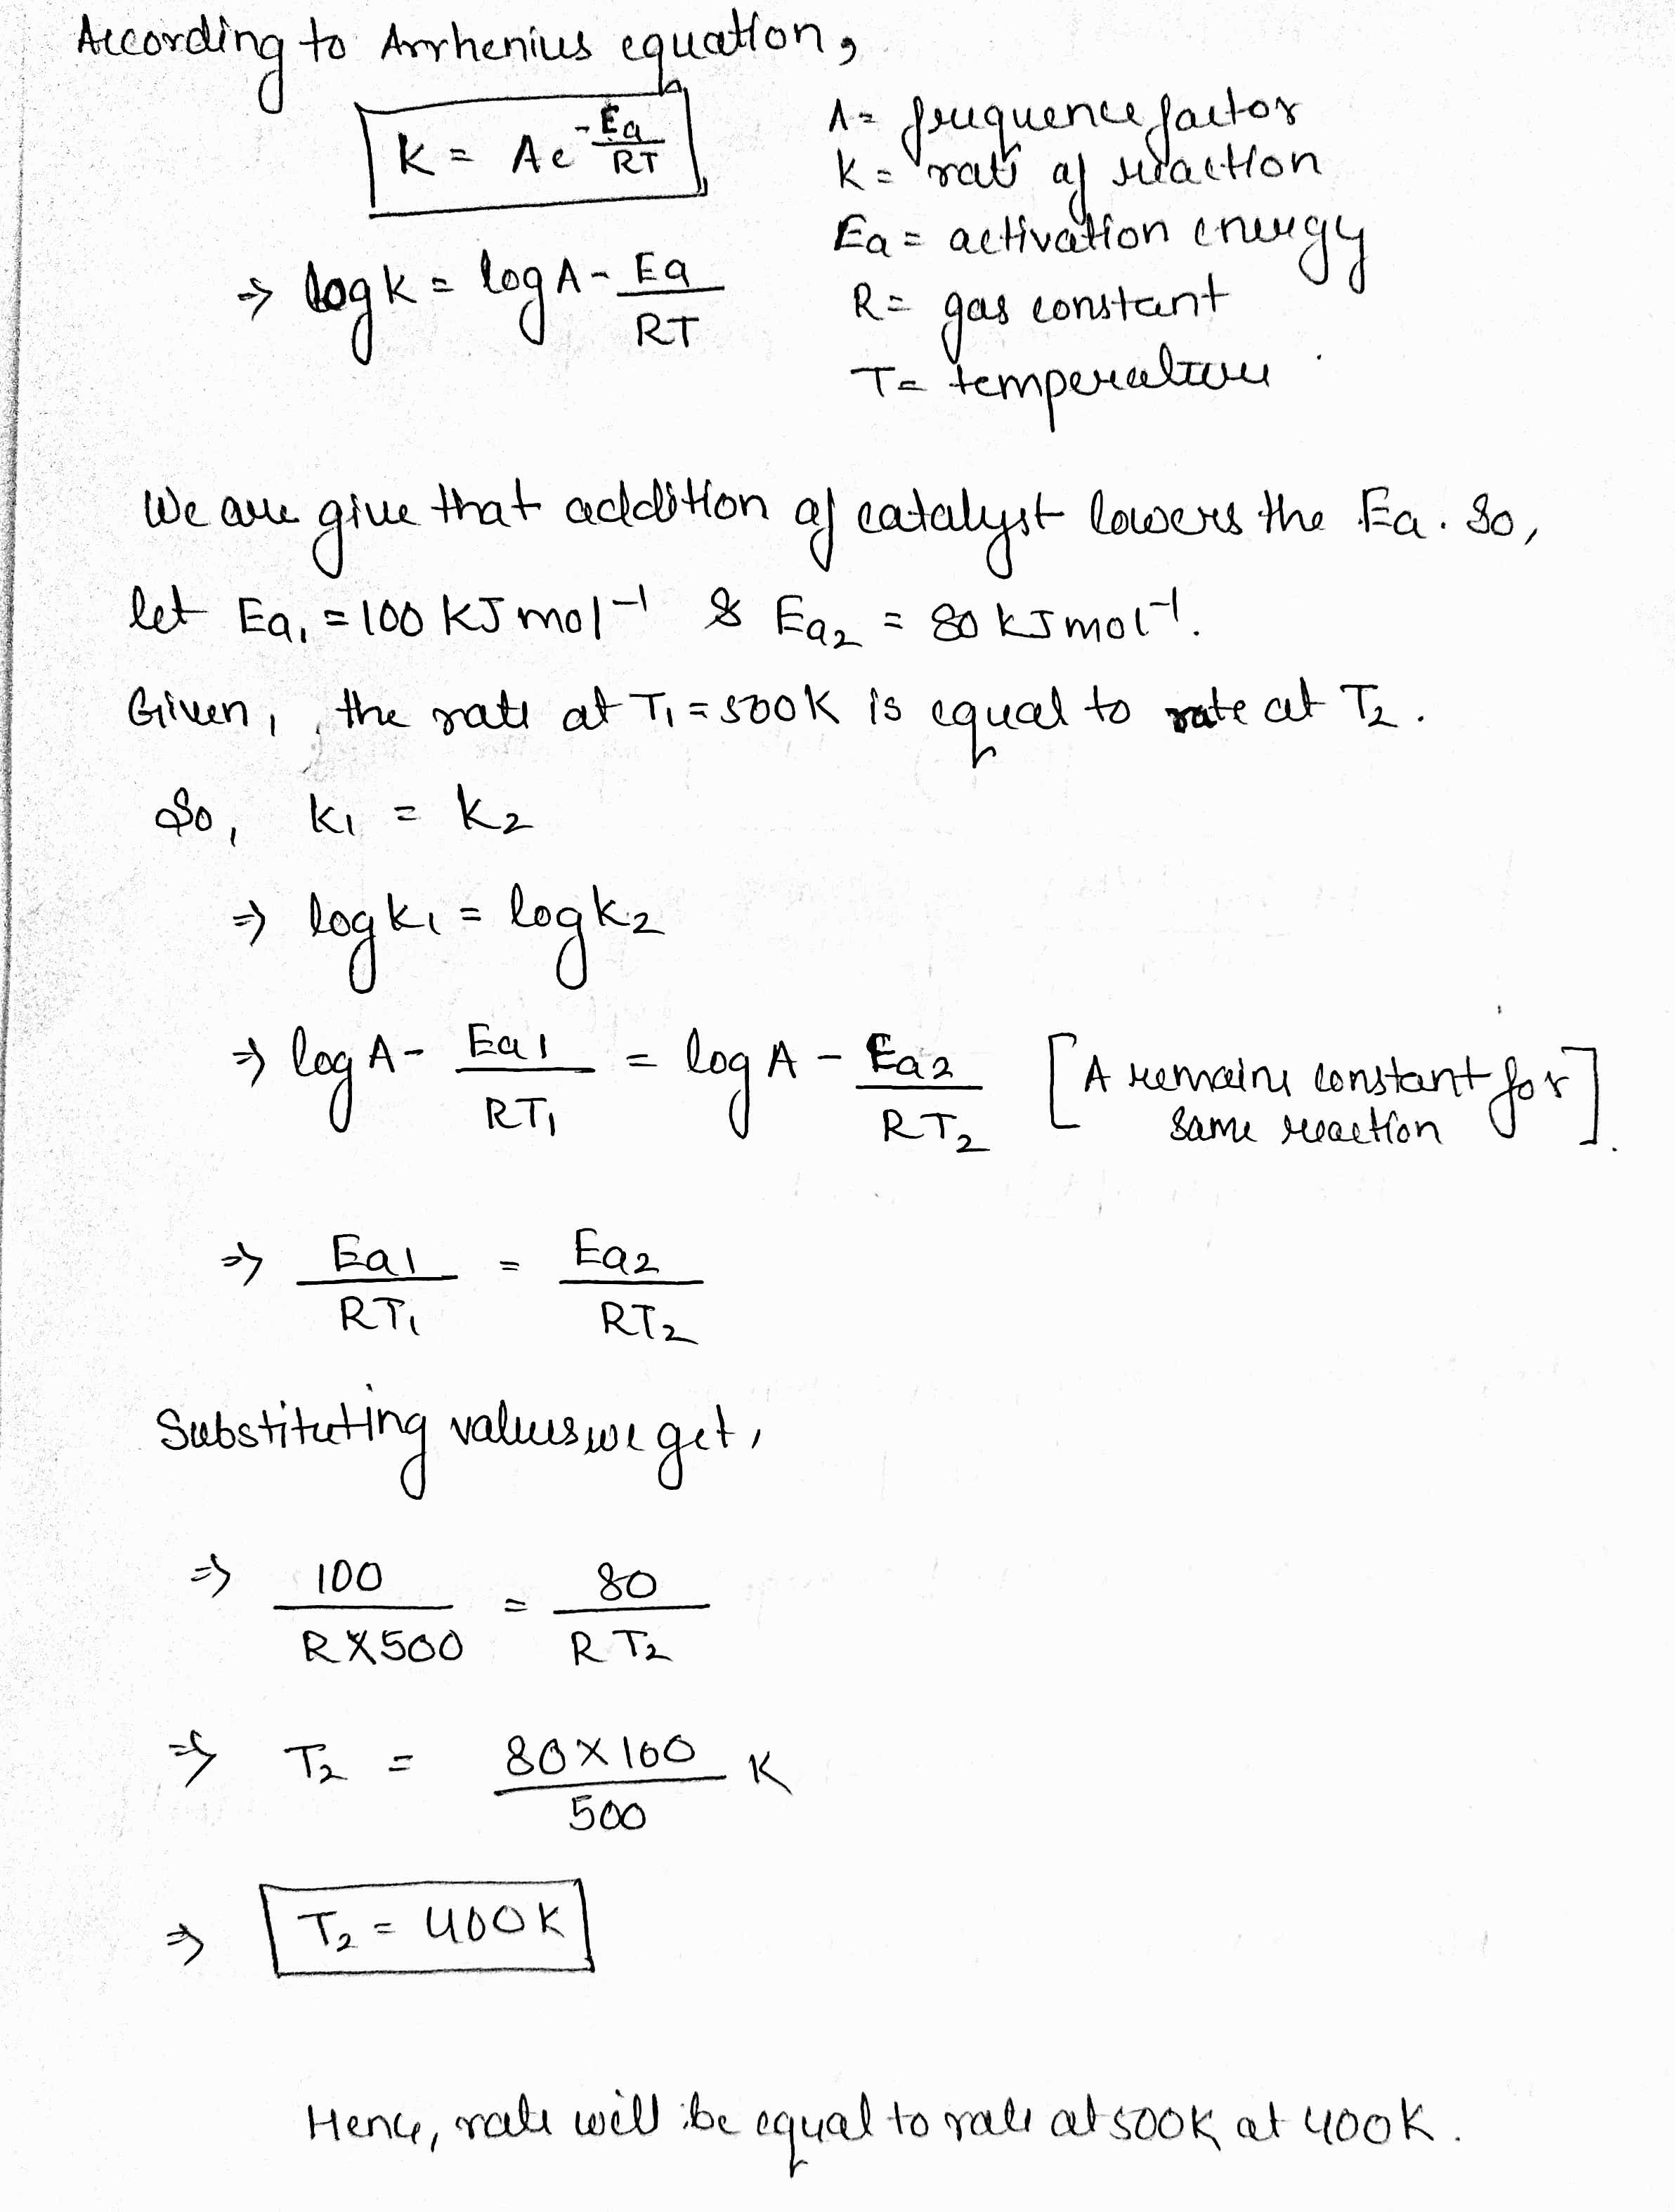 According to Arrhenius equation,
K = Ae^(-Ea/RT)
A = frequence factor
K = rate of reaction
⇒ log K = log A - Ea/RT
Ea = activation energy
R = gas constant
T = temperature
We are give that addition of catalyst lowers the Ea. So,
let Ea₁ = 100 KJ mol⁻¹ & Ea₂ = 80 kJ mol⁻¹.
Given, the rate at T₁ = 500K is equal to rate at T₂.
So, K₁ = K₂
⇒ log K₁ = log K₂
⇒ log A - Ea1/RT₁ = log A - Ea2/RT₂ [A remains constant for same reaction].
⇒ Ea1/RT₁ = Ea2/RT₂
Substituting values we get,
⇒ 100/R×500 = 80/RT₂
⇒ T₂ = 80×100/500 K
⇒ T₂ = 400K
Hence, rate will be equal to rate at 500K at 400K.